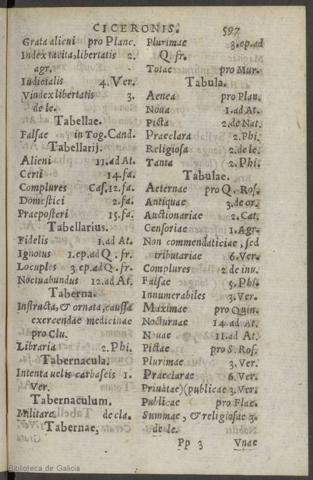 CICERONIS.
597
Grata alieni pro Planc.
Index tacita, libertatis 2.
agr.
Iudicialis 4. Ver.
Vindex libertatis 3.
de le.
Tabellae.
Falsae in Tog. Cand.
Tabellarij.
Alieni 11. ad At.
Certi 14. fa.
Complures Cæs. 12. fa.
Domestici 2. fa.
Praeposteri 15. fa.
Tabellarius.
Fidelis 1. ad At.
Ignotus 1. ep. ad Q. fr.
Locuples 3. ep. ad Q. fr.
Noctuabundus 12. ad At.
Taberna.
Instructa, & ornata, caussa
exercendae medicinae
pro Clu.
Libraria 2. Phi.
Tabernacula.
Intenta uelis carbaseis 1.
Ver.
Tabernaculum.
Militare. de cla.
Tabernae,
Plurimae 3. ep. ad
Q. fr.
Totae pro Mur.
Tabula.
Aenea pro Plan.
Noua 1. ad At.
Picta 2. de Nat.
Praeclara 2. Phi.
Religiosa 2. de le.
Tanta 2. Phi.
Tabulae.
Aeternae pro Q. Ros.
Antiquae 3. de or.
Auctionariae 2. Cat.
Censoriae 1. Agr.
Non commendaticiae, sed
tributariae 6. Ver.
Complures 2. de inu.
Falsae 5. Phi.
Innumerabiles 3. Ver.
Maximae pro Quin.
Nocturnae 14. ad At.
Nouae 11. ad At.
Pictae pro S. Ros.
Plurimae 3. Ver.
Praeclarae 6. Ver.
Priuatae) (publicae 3. Ver.
Publicae pro Flac.
Summae, & religiosae 3.
de le.
Pp 3 Vnae
Biblioteca de Galicia